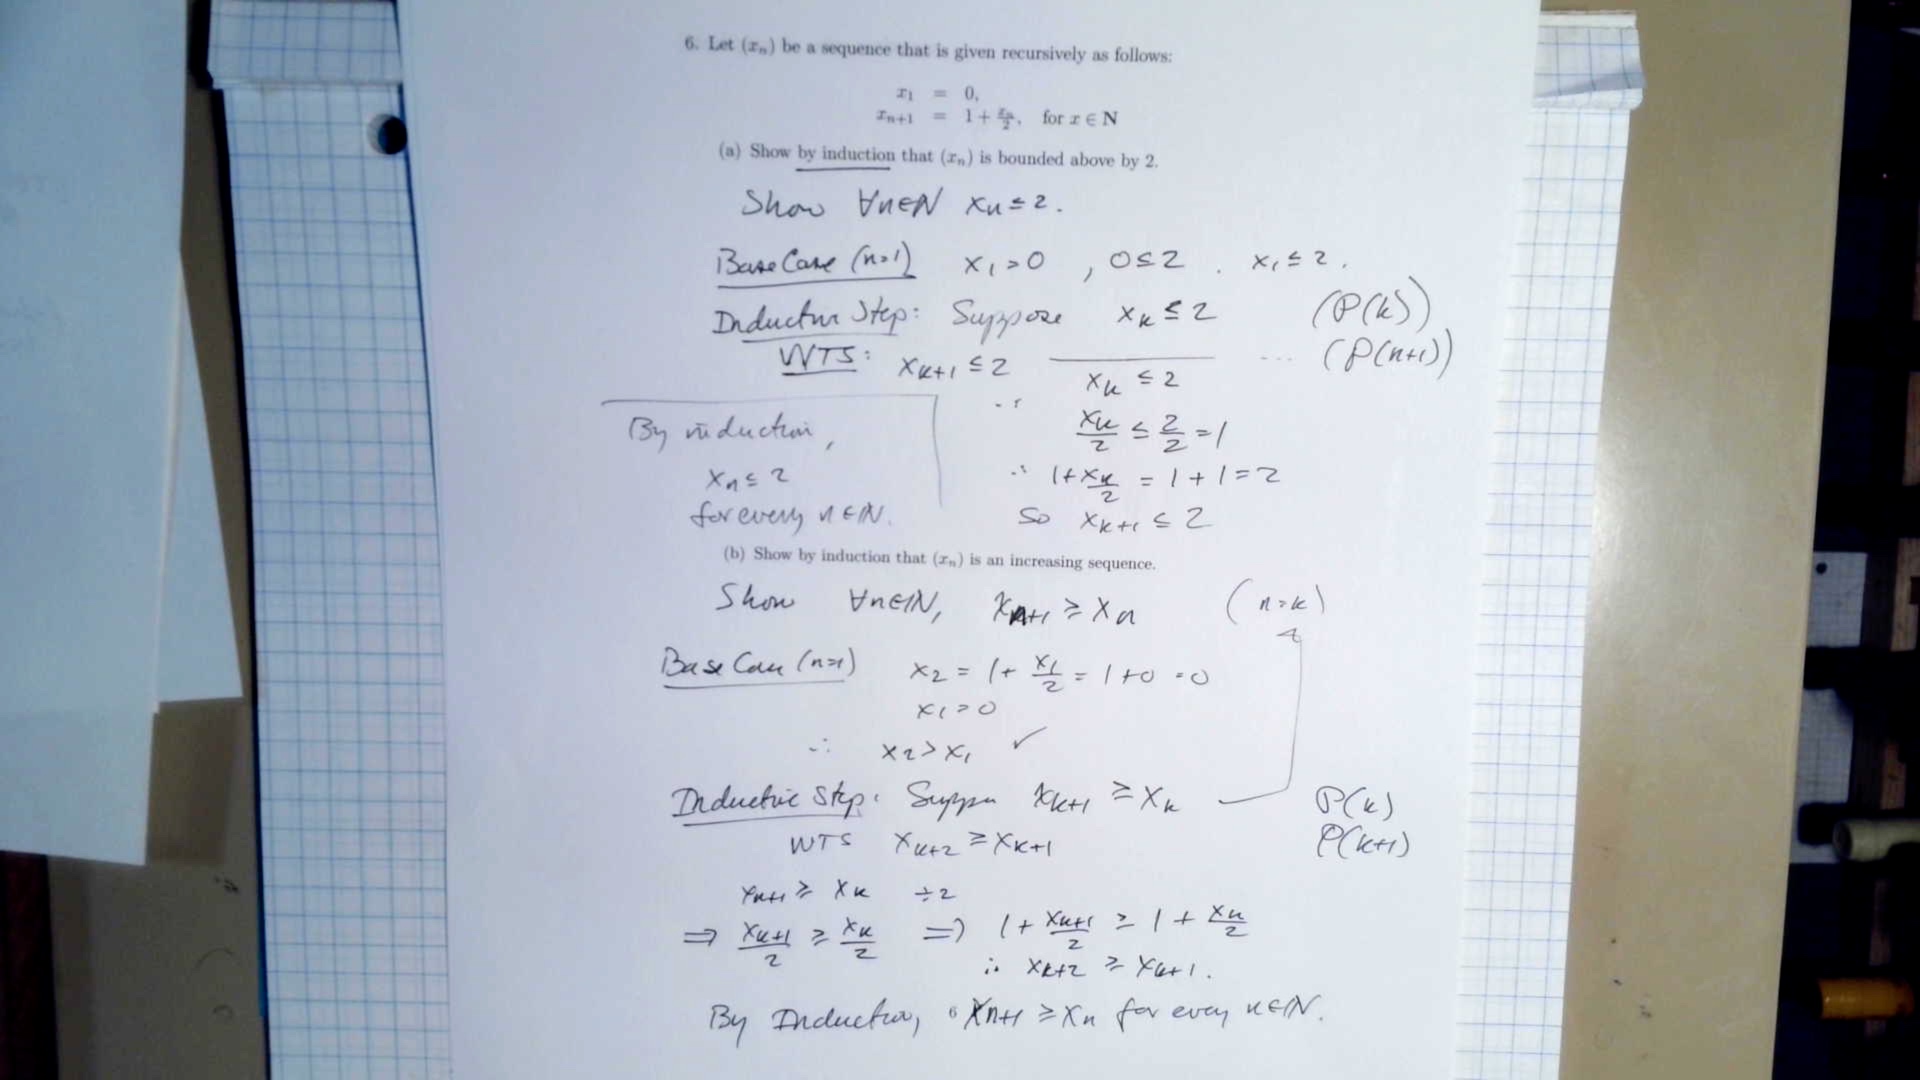 6. Let (xₙ) be a sequence that is given recursively as follows:
x₁ = 0,
xₙ₊₁ = 1 + xₙ/2, for x ∈ N
(a) Show by induction that (xₙ) is bounded above by 2.
Show ∀n∈N xₙ ≤ 2.
Base Case (n=1) x₁=0 , 0≤2 . x₁ ≤ 2.
Inductive Step: Suppose xₖ ≤ 2 (P(k))
WTS: xₖ₊₁ ≤ 2 ... (P(n+1))
xₖ ≤ 2
∴ xₖ/2 ≤ 2/2 = 1
∴ 1+xₖ/2 = 1+1=2
So xₖ₊₁ ≤ 2
By induction,
xₙ ≤ 2
for every n∈N.
(b) Show by induction that (xₙ) is an increasing sequence.
Show ∀n∈N, xₙ₊₁ ≥ xₙ (n=k)
Base Case (n=1) x₂ = 1+ x₁/2 = 1+0 =0
x₁=0
∴ x₂>x₁ ✓
Inductive Step: Suppose xₖ₊₁ ≥ xₖ P(k)
WTS xₖ₊₂ ≥ xₖ₊₁ P(k+1)
xₖ₊₁ ≥ xₖ ÷2
⇒ xₖ₊₁/2 ≥ xₖ/2 ⇒ 1 + xₖ₊₁/2 ≥ 1 + xₖ/2
∴ xₖ₊₂ ≥ xₖ₊₁.
By Induction, xₙ₊₁ ≥ xₙ for every n∈N.